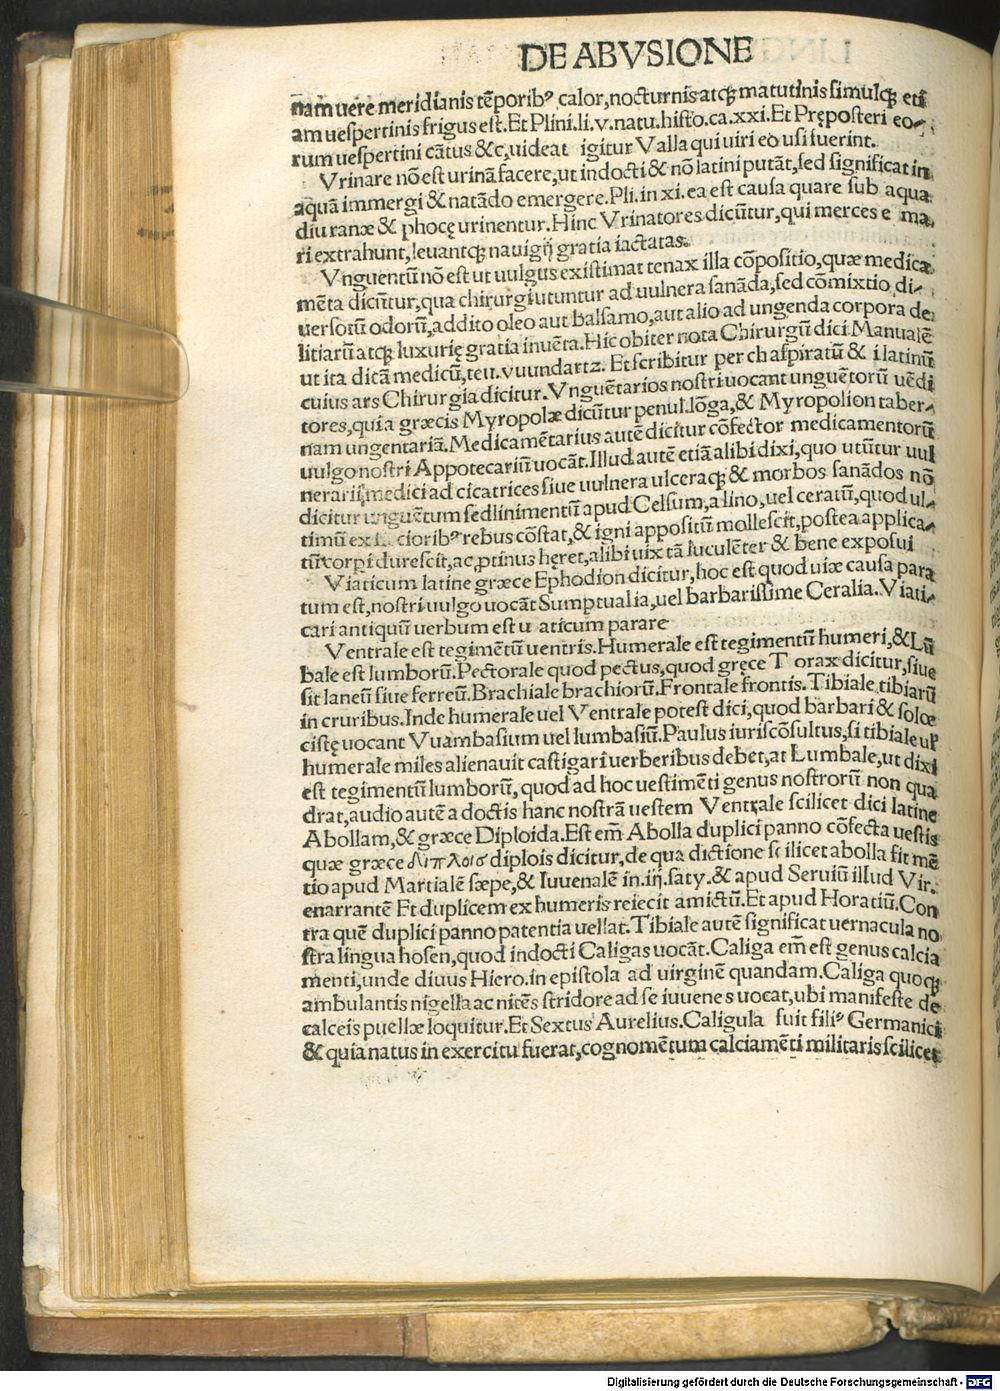 DE ABVSIONE
nam uere meridianis tēporibꝰ calor, nocturnis atqꝫ matutinis simulqꝫ eti
am uespertinis frigus est. Et Plini. li. v. natu. histo. ca. xxi. Et Pręposteri eo-
rum uespertini cātus &c, uideat igitur Valla qui uiri eo usi fuerint.
Vrinare nō est urinā facere, ut indocti & nō latini putāt, sed significat in
aquā immergi & natādo emergere. Pli. in xi. ea est causa quare sub aqua
diu ranæ & phocę urinentur. Hinc Vrinatores dicūtur, qui merces e ma-
ri extrahunt, leuantqꝫ nauigij gratia iactatas.
Vnguentū nō est ut uulgus existimat tenax illa cōpositio, quæ medica
mēta dicūtur, qua chirurgi utuntur ad uulnera sanāda, sed cōmixtio di-
uersorū odorū, addito oleo aut balsamo, aut alio ad ungenda corpora de
litiarū atqꝫ luxurię gratia inuēta. Hic obiter nota Chirurgū dici Manualē
ut ita dicā medicū, teu. vuundartz. Et scribitur per ch aspiratū & i latinū
cuius ars Chirurgia dicitur. Vnguētarios nostri uocant unguētorū uēdi
tores, qui a græcis Myropolæ dicūtur penul. lōga, & Myropolion taber-
nam ungentariā. Medicamētarius autē dicitur cōfector medicamentorū
uulgo nostri Appotecariū uocāt. Illud autē etiā alibi dixi, quo utūtur uul
nerarii medici ad cicatrices siue uulnera ulceraqꝫ & morbos sanādos nō
dicitur unguētum sed linimentū apud Celsum, a lino, uel ceratū, quod ul-
timū ex cioribꝰ rebus cōstat, & igni appositū mollescit, postea applica-
tū corpi durescit, ac ꝓtinus hęret, alibi uix tā luculēter & bene exposui
Viaticum latine græce Ephodion dicitur, hoc est quod uiæ causa para
tum est, nostri uulgo uocāt Sumptualia, uel barbarissime Ceralia. Viati-
cari antiquū uerbum est u aticum parare
Ventrale est tegimētū uentris. Humerale est tegimentū humeri, & Lū
bale est lumborū. Pectorale quod pectus, quod gręce T orax dicitur, siue
sit laneū siue ferreū. Brachiale brachiorū. Frontale frontis. Tibiale tibiarū
in cruribus. Inde humerale uel Ventrale potest dici, quod barbari & solœ
cistę uocant Vuambasium uel lumbasiū. Paulus iuriscōsultus, si tibiale uł
humerale miles alienauit castigari uerberibus debet, at Lumbale, ut dixi
est tegimentū lumborū, quod ad hoc uestimēti genus nostrorū non qua
drat, audio autē a doctis hanc nostrā uestem Ventrale scilicet dici latine
Abollam, & græce Diploida. Est em̄ Abolla duplici panno cōfecta uestis
quæ græce διπλοισ diplois dicitur, de qua dictione sc ilicet abolla fit mē
tio apud Martialē sæpe, & Iuuenalē in. iij. saty. & apud Seruiū illud Vir.
enarrantē Et duplicem ex humeris reiecit amictū. Et apud Horatiū. Con
tra quē duplici panno patentia uellat. Tibiale autē significat uernacula no
stra lingua hosen, quod indocti Caligas uocāt. Caliga em̄ est genus calcia
menti, unde diuus Hiero. in epistola ad uirginē quandam. Caliga quoqꝫ
ambulantis nigella ac nitēs stridore ad se iuuenes uocat, ubi manifeste de
calceis puellæ loquitur. Et Sextus Aurelius. Caligula fuit filiꝰ Germanici
& quia natus in exercitu fuerat, cognomētum calciamēti militaris scilicet
Digitalisierung gefördert durch die Deutsche Forschungsgemeinschaft - DFG